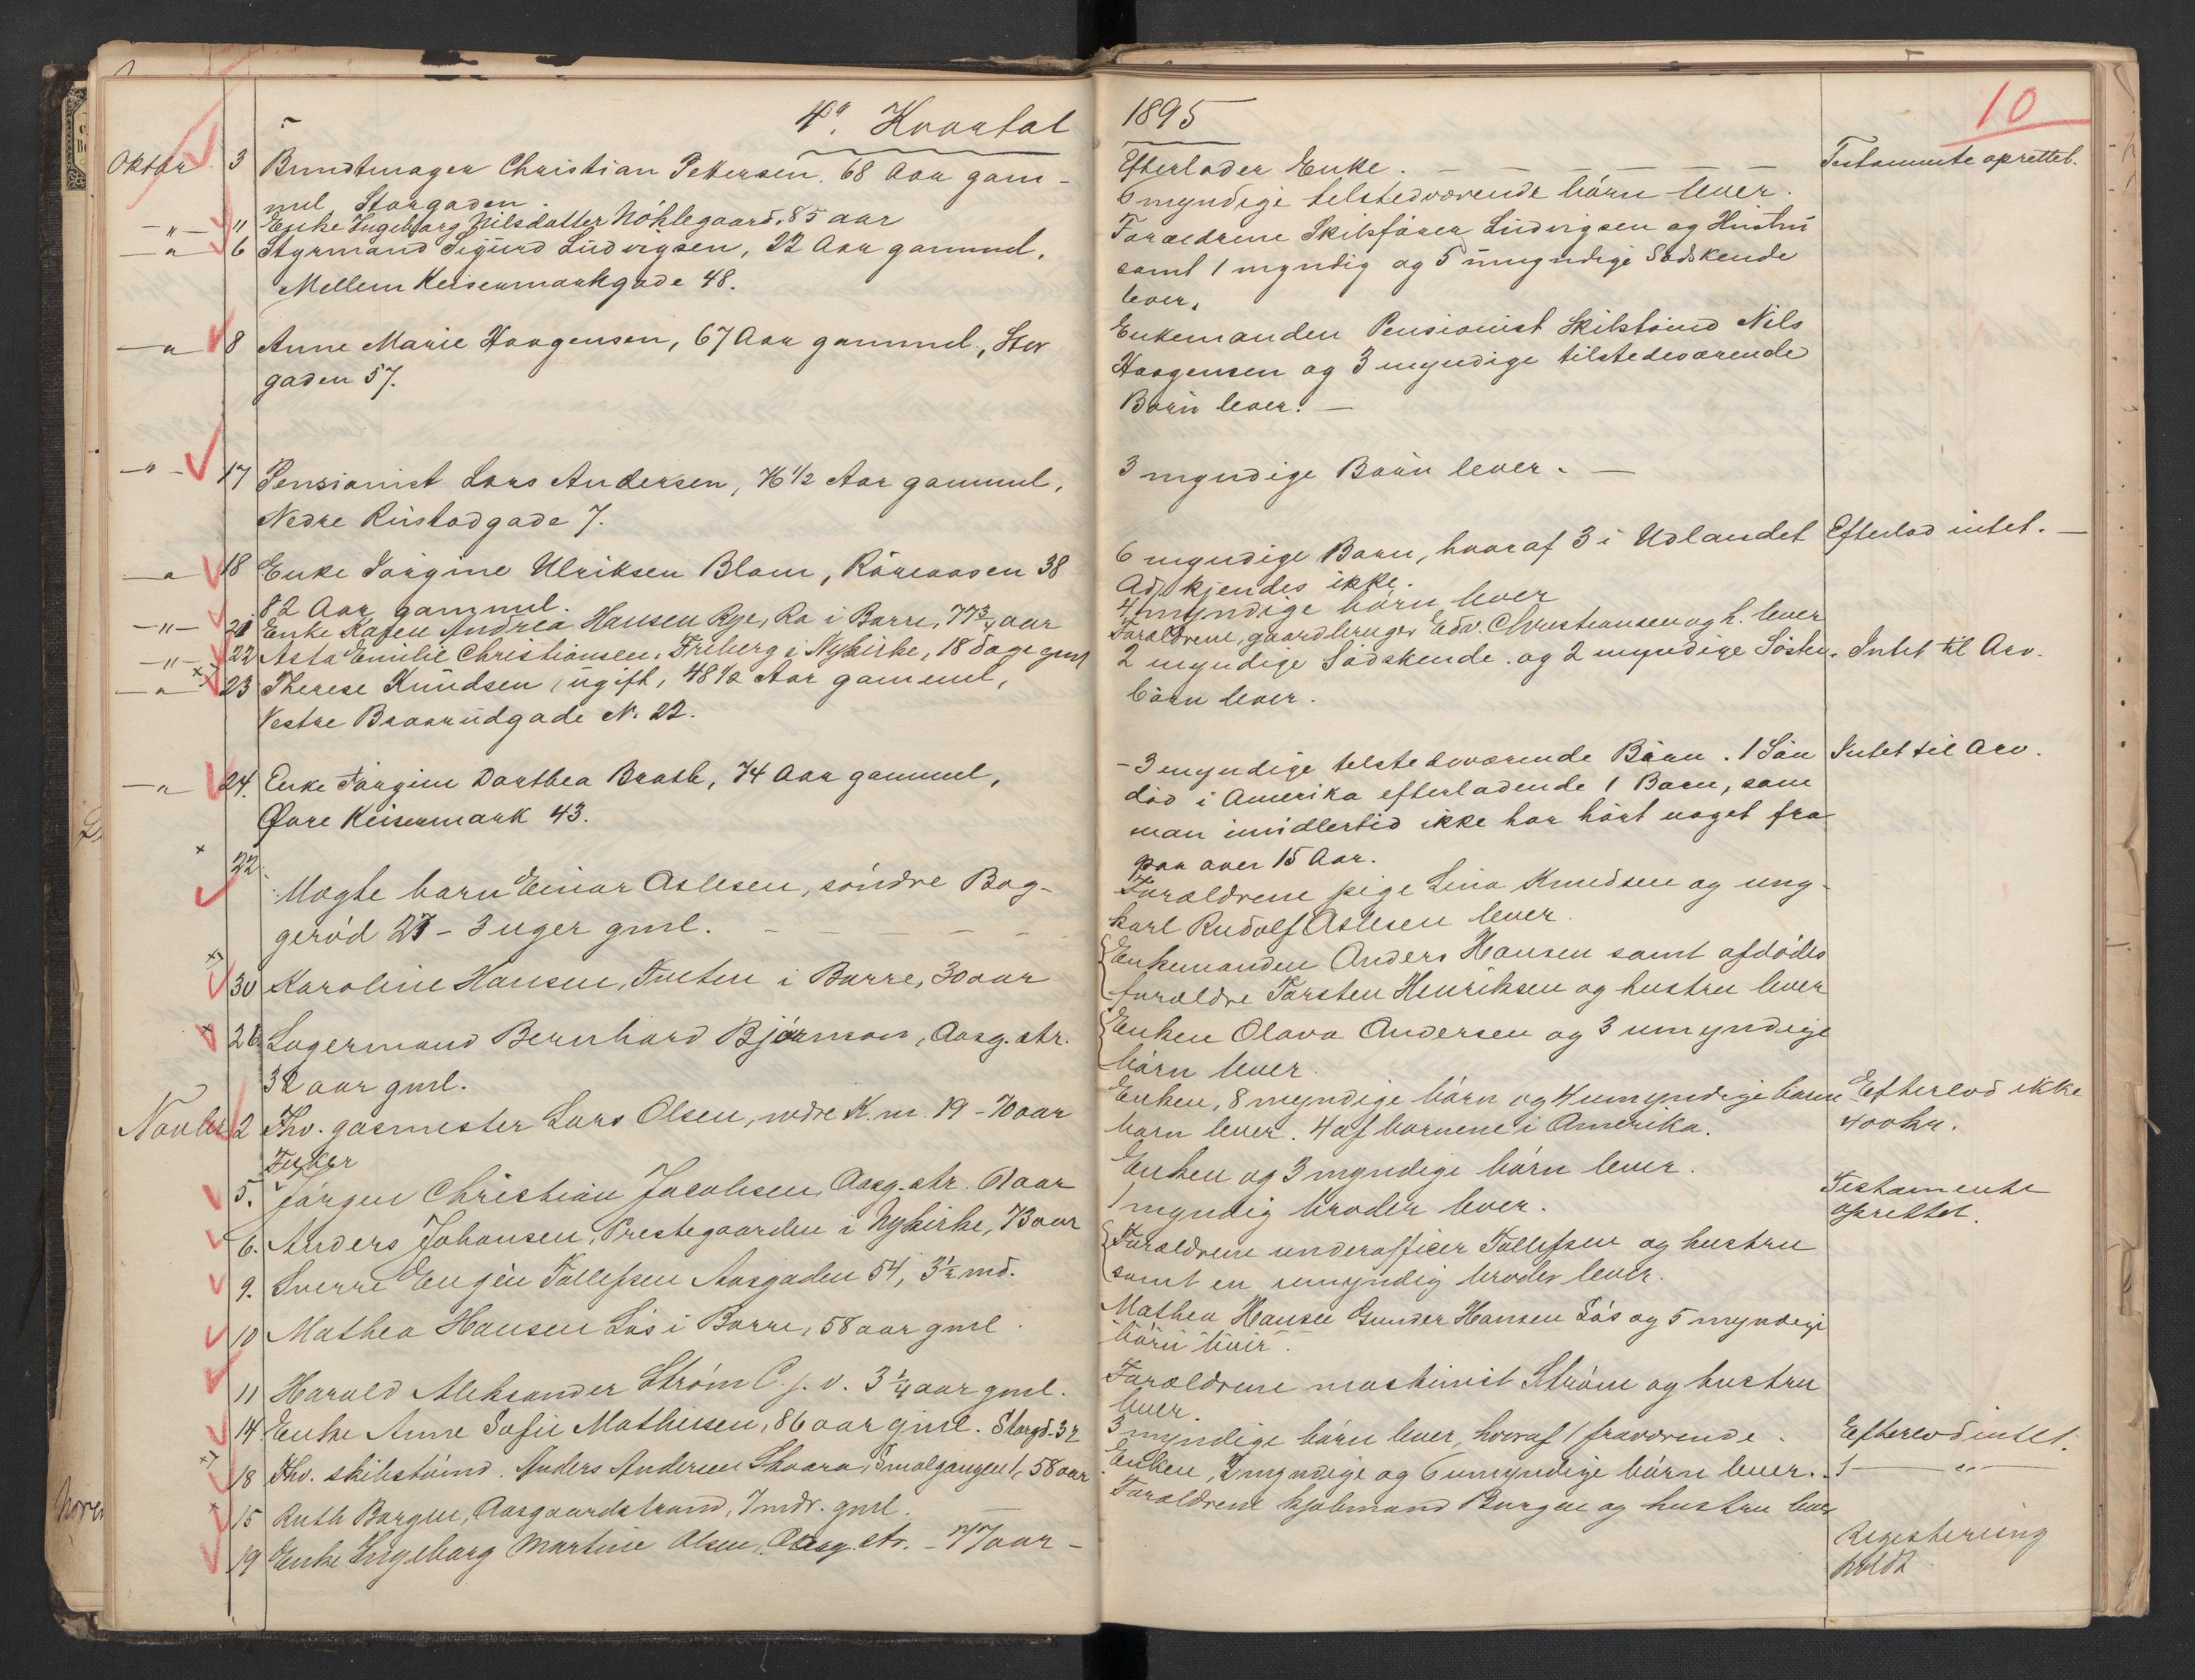 4de Kvartal
Oktbr 3 Bundtmager Christian Petersen, 68 Aar gam-
mel, Storgaden.
—"— " Enke Ingeborg Nilsdatter Nøklegaard, 85 aar
—"— 6 Styrmand Sigurd Ludvigsen, 22 Aar gammel,
Mellem Keisermarkgade 48.
—"— 8 Anne Marie Haagensen, 67 Aar gammel, Stor
gaden 57.
—"— 17 Pensionist Lars Andersen, 76 1/2 Aar gammel,
Nedre Rustadgade 7.
—"— 18 Enke Jørgine Ulriksen Blom, Røreaasen 38
82 Aar gammel.
—"— 21 Enke Karen Andrea Hansen Rye, Ra i Borre, 77 3/4 aar
—"— 22 Asta Emilie Christiansen, Freberg i Nykirke, 18 dage gml
—"— 23 Therese Knudsen, ugift, 48 1/2 Aar gammel,
Vestre Braarudgade N. 22.
—"— 24. Enke Jørgine Dorthea Brath, 74 Aar gammel,
Øvre Keisermark 43.
22 Uægte barn Einar Aslesen, søndre Bag-
gerød 27 - 3 uger gml. — — — —
30 Karoline Hansen, Tveten i Borre, 30 aar
26 Lagermand Bernhard Bjørnson, Aasg. str.
32 aar gml.
Novbr 2 Fhv. gasmester Lars Olsen, nedre K. m. 19 - 70 aar
Fisker
5. Jørgen Christian Jacobsen, Aasg. str. 61 aar
6. Anders Johansen, Prestegaarden i Nykirke, 73 aar
9. Sverre Eugén Tollefsen Aasgaden 54, 3 1/2 md.
10 Mathea Hansen Løs i Borre, 58 aar gml.
11 Harald Aleksander Strøm C. j. v. 3 1/4 aar gml.
14 Enke Anne Sofie Mathisen, 86 aar gml. Storgd. 32
18 Fhv. skibstømd. Anders Andersen Skaara, Smalgangen 1, 58 aar
15 Ruth Borgen, Aasgaardstrand, 7 mdr. gml. —
19 Enke Ingeborg Martine Olsen, Aasg. str. - 77 aar -
1895
10
Efterlader Enke. — — — — — — Testamente oprettet.
6 myndige tilstedværende børn lever.
Forældrene Skibsfører Ludvigsen og Hustru
samt 1 myndig og 5 umyndige Sødskende
lever.
Enkemanden Pensionist Skibstømd Nils
Haagensen og 3 myndige tilstedeværende
Børn lever. —
3 myndige Børn lever. —
6 myndige Børn, hvoraf 3 i Udlandet Efterlod intet. —
Adr. kjendes ikke.
4 myndige børn lever
Forældrene, gaardbruger Edv. Christiansen og h. lever
2 myndige Sødskende og 2 myndige Søster- Intet til Arv.
børn lever.
- 3 myndige tilstedeværende Børn. 1 Søn Intet til Arv.
død i Amerika efterladende 1 Barn, som
man imidlertid ikke har hørt noget fra
paa over 15 Aar.
Forældrene pige Lina Knudsen og ung-
karl Rudolf Aslesen lever.
Enkemanden Anders Hansen samt afdødes
forældre Torsten Henriksen og hustru lever
Enken Olava Andersen og 3 umyndige
børn lever.
Enken, 8 myndige børn og 4 umyndige børne Efterlod ikke
barn lever. 4 af børnene i Amerika. 400 kr.
Enken og 3 myndige børn lever.
1 myndig broder lever. Testamente
oprettet.
Forældrene underofficer Tollefsen og hustru
samt en umyndig broder lever.
Mathea Hansen Gunder Hansen Løs og 5 myndige
børn lever.
Forældrene maskinist Strøm og hustru
lever.
3 myndige børn lever, hvoraf 1 fraværende. Efterlod intet.
Enken, 2 myndige og 6 umyndige børn lever. — " —
Forældrene kjøbmand Borgen og hustru lever
Registrering
holdt.